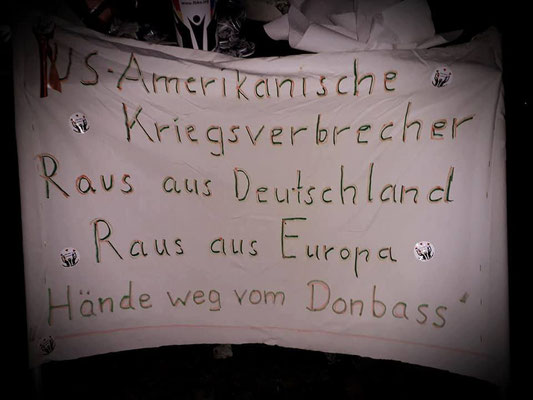 US-Amerikanische
Kriegsverbrecher
Raus aus Deutschland
Raus aus Europa
Hände weg vom Donbass